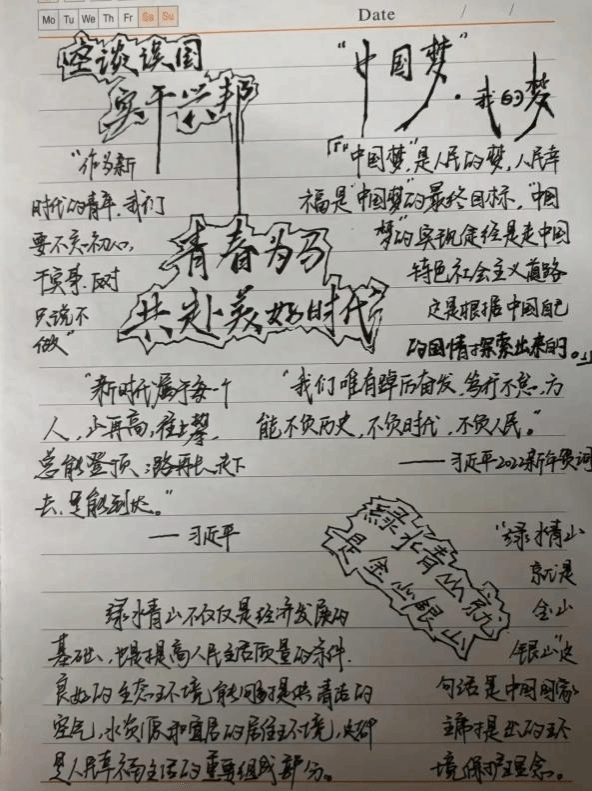 Mo Tu We Th Fr Sa Su
Date / /
空谈误国
实干兴邦
“中国梦”·我的梦
“作为新
时代的青年,我们
要不忘初心,
干实事,反对
只说不
做”
「“中国梦”是人民的梦,人民幸
福是“中国梦”的最终目标,“中国
梦”的实现途径是走中国
特色社会主义道路
这是根据中国自己
的国情探索出来的。」
青春为马
共赴美好时代
“新时代属于每一个
人,山再高,往上攀,
总能登顶;路再长,走下
去,定能到达。”
——习近平
“我们唯有踔厉奋发、笃行不怠,方
能不负历史、不负时代、不负人民。”
——习近平2022新年贺词
绿水青山就
是金山银山
“绿水青山
就是
金山
银山”这
句话是中国国家
主席提出的环
境保护理念。
绿水青山不仅仅是经济发展的
基础,也是提高人民生活质量的条件.
良好的生态环境能够提供清洁的
空气,水资源和宜居的居住环境,这种
是人民幸福生活的重要组成部分。